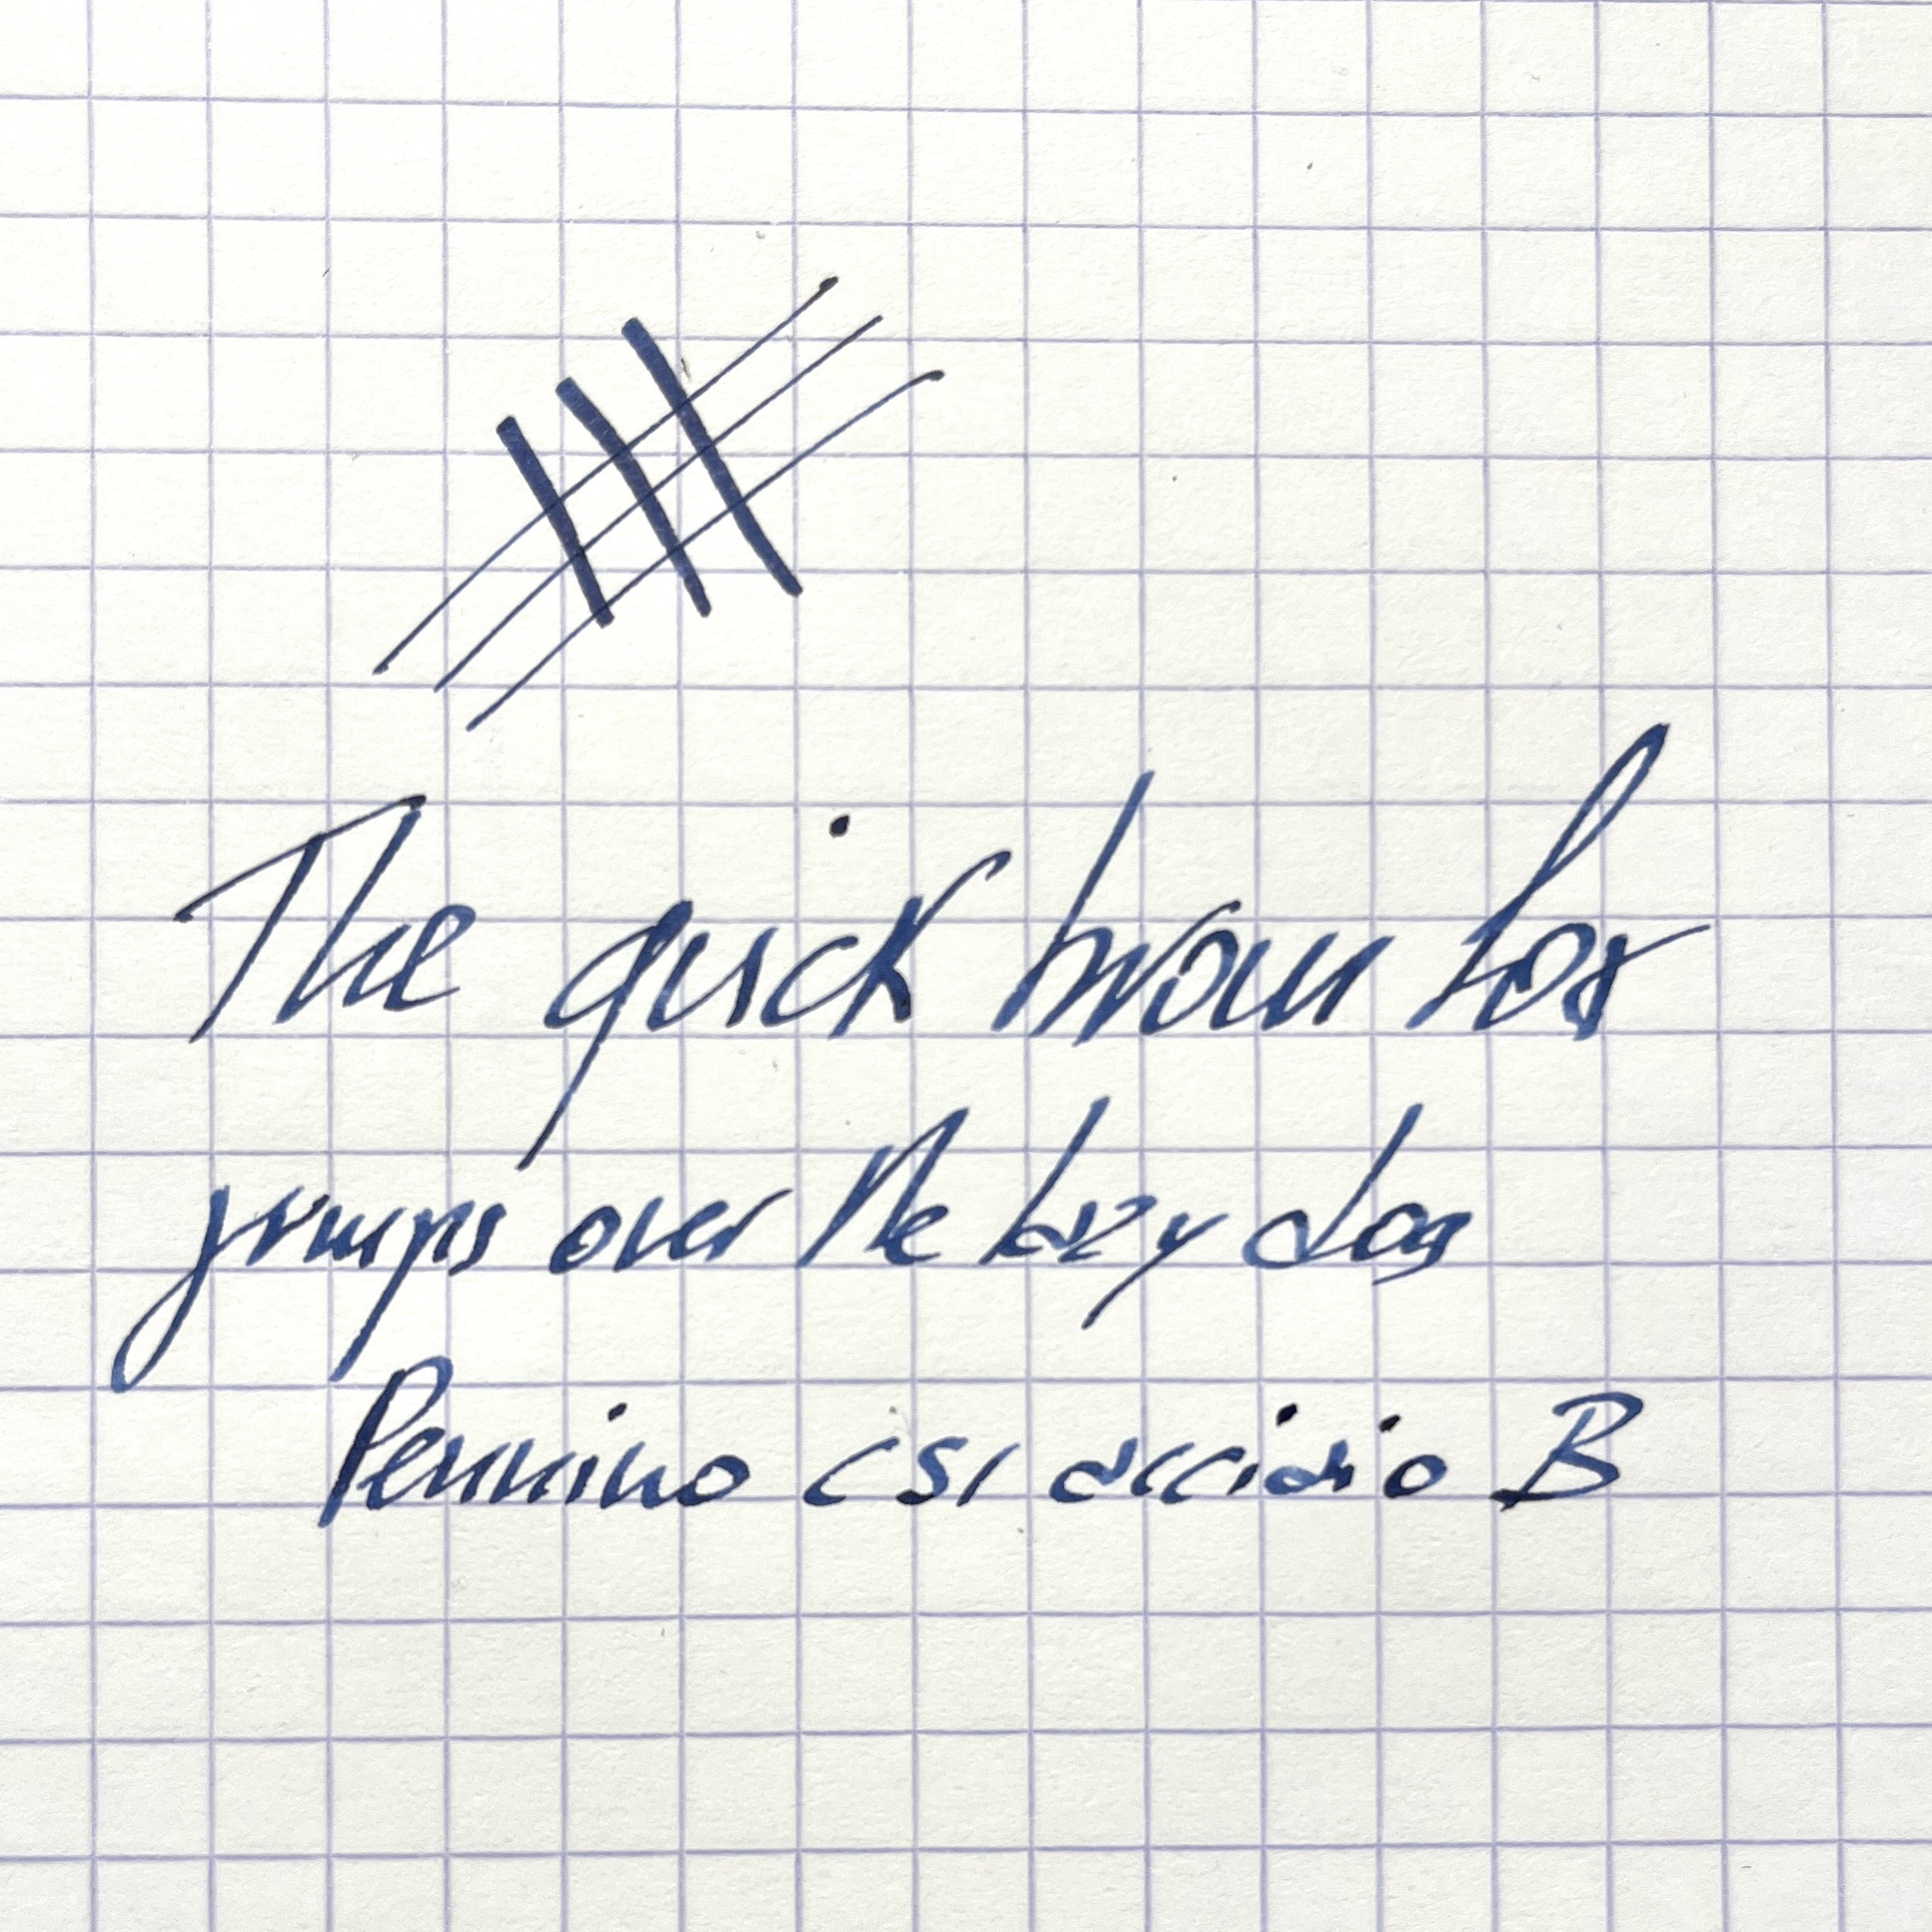 The quick brown fox
jumps over the lazy dog
Pennino CSI acciaio B